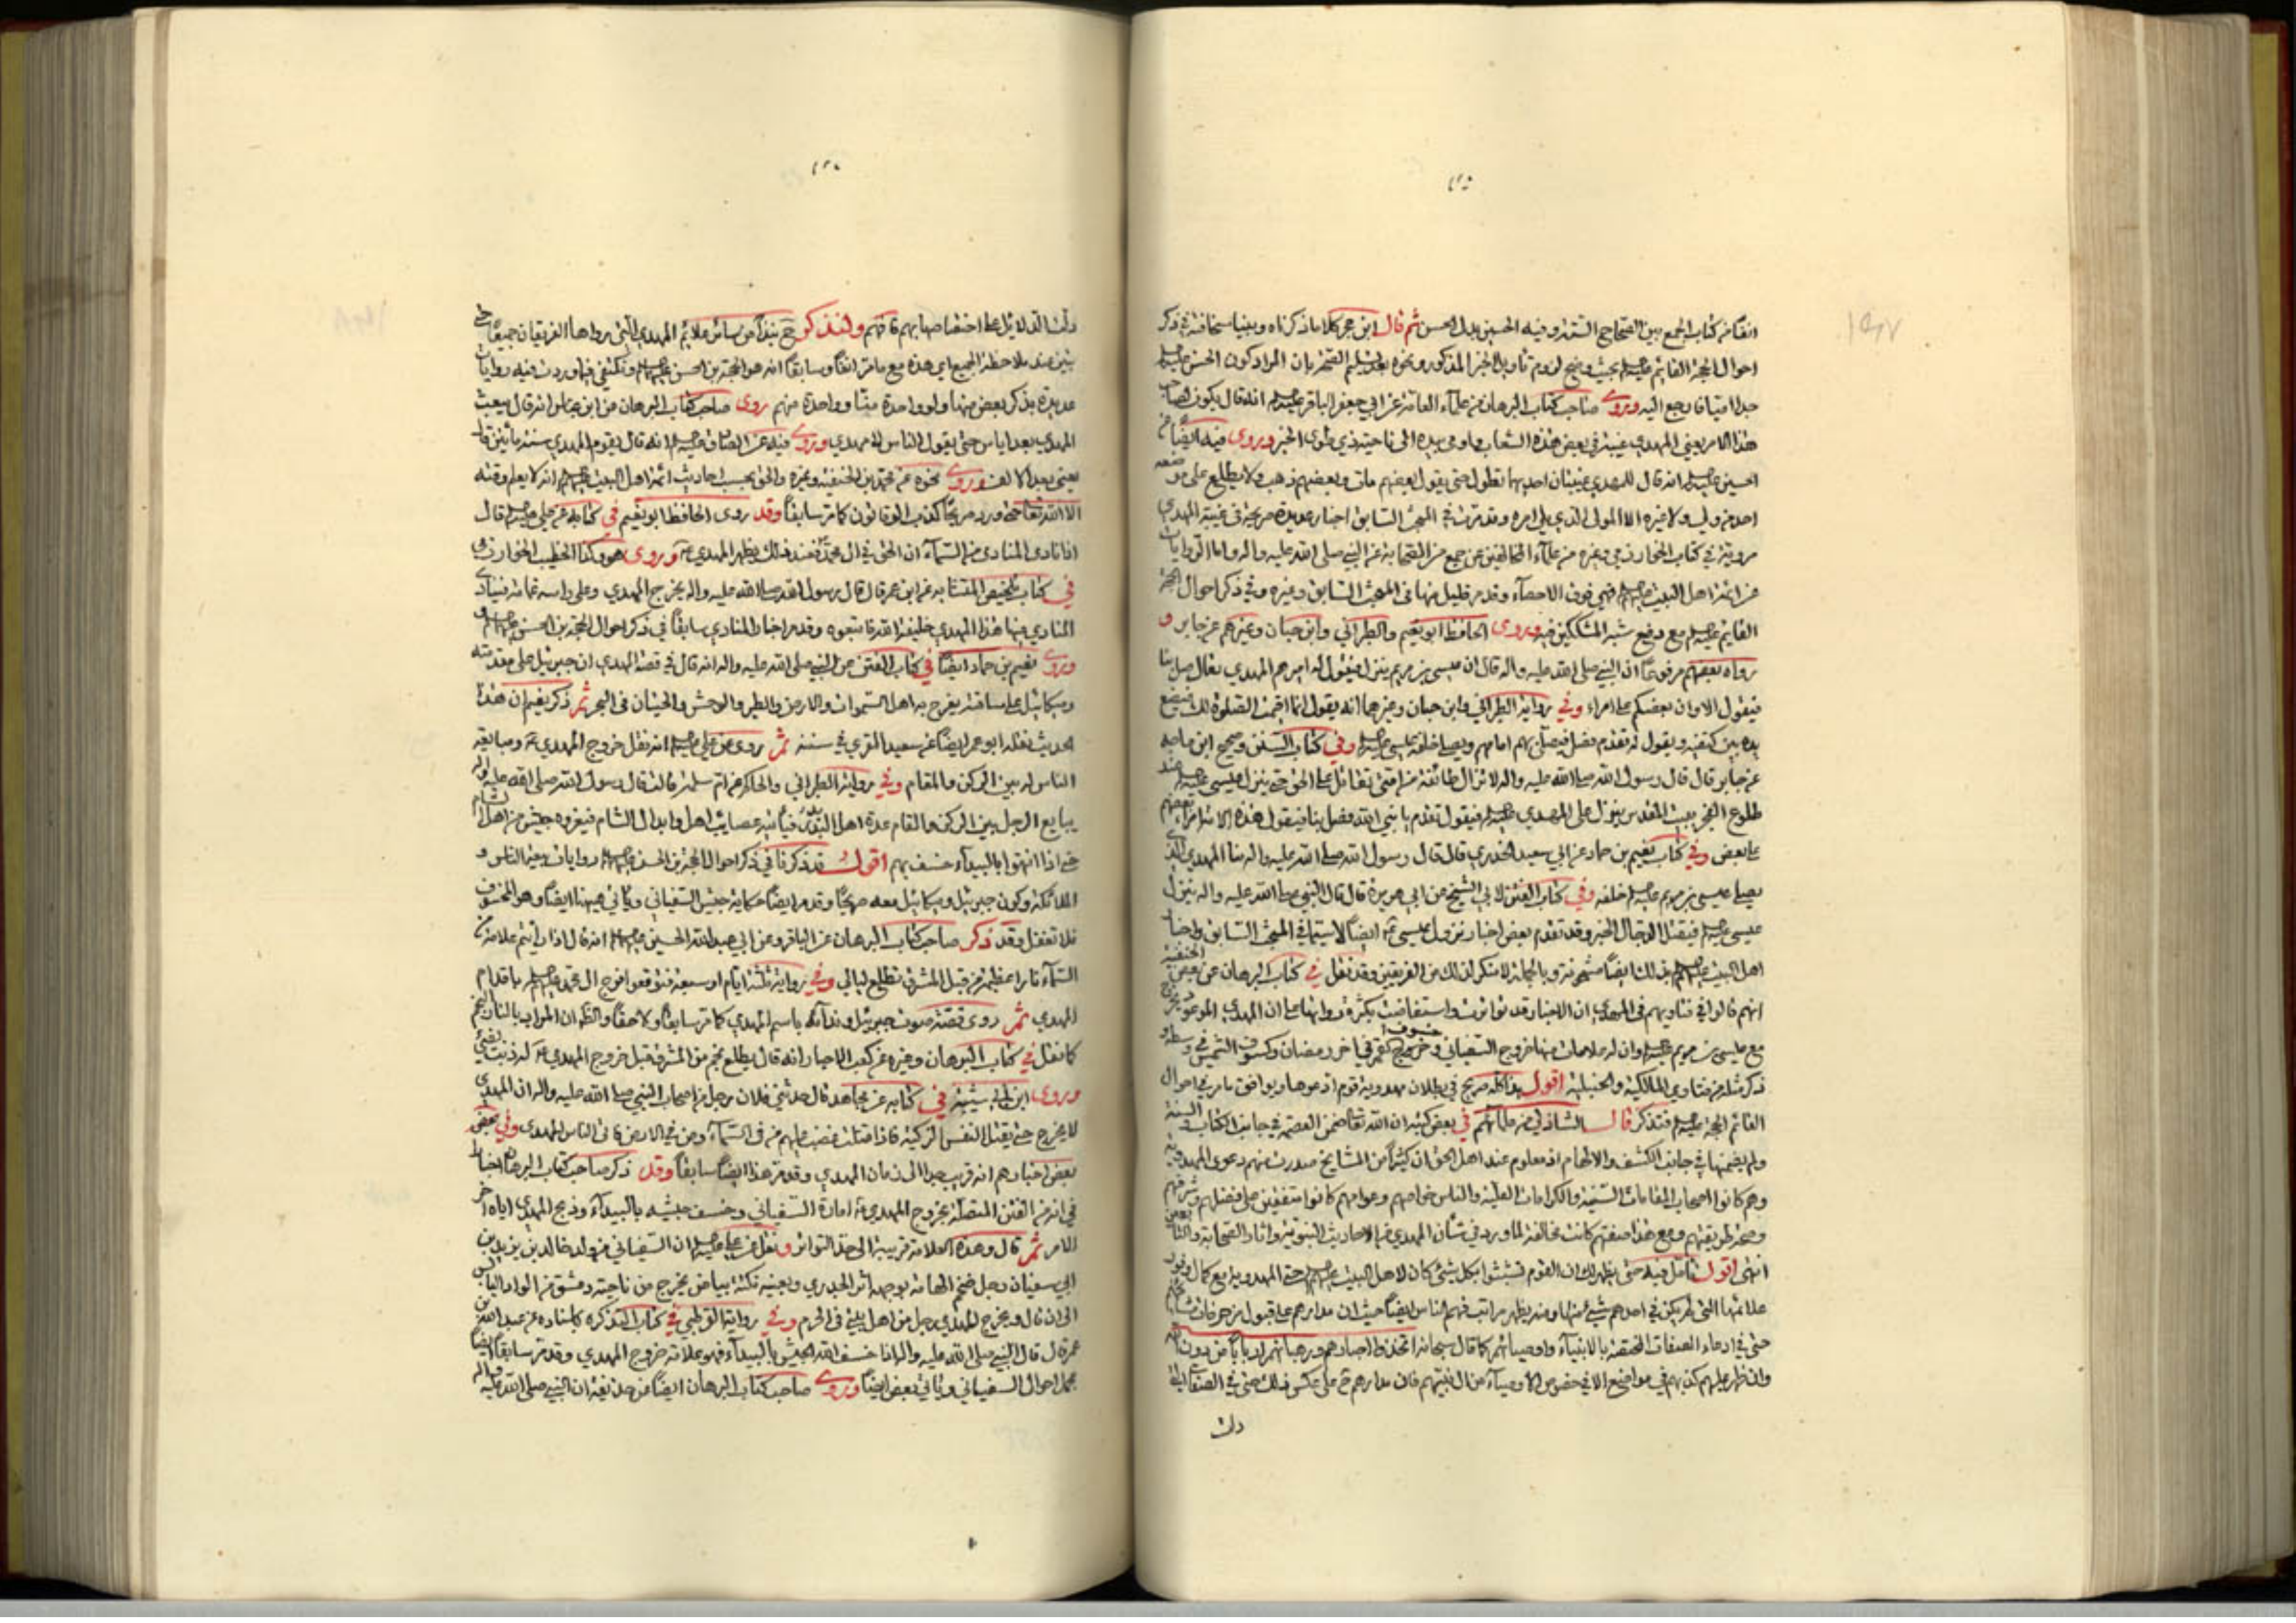 انفا من كتاب الجمع بين الصحاح الستة وفيه الحسين بدل الحسن ثم قال ابن حجر كلاما ذكرناه وبينا سخافته في ذكر
احوال الحجة القائم عليه السلام بحيث وضح لزوم تأويل الخبر المذكور ونحوه بعد تسليم الصحة بان المراد كون الحسن عليه السلام
جدا اميا فارجع اليه وروى صاحب كتاب البرهان من علماء العامة عن ابي جعفر الباقر عليه السلام انه قال يكون لصاحب
هذا الامر يعني المهدي غيبة في بعض هذه الشعاب واومى بيده الى ناحية ذي طوى الخبر وروى فيه ايضا عن
الحسين عليه السلام انه قال للمهدي غيبتان احديهما تطول حتى يقول بعضهم مات وبعضهم ذهب ولا يطلع على موضعه
احد من ولي ولا غيره الا المولى الذي يلي امره وقد مرت في المبحث السابق اخبار عديدة صريحة في غيبة المهدي
مروية في كتاب الخوارزمي وغيره من علماء المخالفين عن جمع من الصحابة عن النبي صلى الله عليه واله واما الروايات
عن ائمة اهل البيت عليهم السلام فهي فوق الاحصاء وقد مر قليل منها في المبحث السابق وغيره وفي ذكر احوال الحجة
القايم عليه السلام مع دفع شبه المشككين فيه وروى الحافظ ابو نعيم والطبراني وابن حبان وغيرهم عن جابر و
رواه بعضهم مرفوعا ان النبي صلى الله عليه واله قال ان عيسى بن مريم ينزل فيقول له اميرهم المهدي تعال صل بنا
فيقول الا وان بعضكم على بعض امراء وفي رواية الطبراني وابن حبان وغيرهما انه يقول انما اقيمت الصلوة لك فيضع
يده بين كتفيه ويقول له تقدم فصل فيصلي بهم امامهم ويصلي خلفه عيسى عليه السلام وفي كتاب السنن وصحيح ابن ماجه
عن جابر قال قال رسول الله صلى الله عليه واله لا تزال طائفة من امتي تقاتل على الحق حتى ينزل عيسى عليه السلام عند
طلوع الفجر ببيت المقدس ينزل على المهدي عليه السلام فيقول تقدم يا نبي الله فصل بنا فيقول هذه الامة امراء بعضهم
على بعض وفي كتاب نعيم بن حماد عن ابي سعيد الخدري قال قال رسول الله صلى الله عليه واله منا المهدي الذي
يصلي عيسى بن مريم عليه السلام خلفه وفي كتاب الفتن لابي الشيخ عن ابي هريرة قال قال النبي صلى الله عليه واله ينزل
عيسى عليه السلام فيقتل الدجال الخبر وقد تقدم بعض اخبار نزول عيسى ايضا لا سيما في المبحث السابق واخبار
اهل البيت عليهم السلام بذلك ايضا مشحونة وبالجملة لا منكر لذلك من الفريقين وقد نقل في كتاب البرهان عن بعض الحنفية
انهم قالوا في فتاويهم في المهدي ان الاخبار قد تواترت واستفاضت بكثرة رواتها على ان المهدي الموعود يخرج
مع عيسى بن مريم عليه السلام وان له علامات منها خروج السفياني وخسوف القمر في اخر رمضان وكسوف الشمس في وسطه و
ذكر مثله من فتاوي المالكية والحنبلية اقول هذا كله صريح في بطلان مهدوية قوم ادعوها ويوافق ما مر في احوال
القائم الحجة عليه السلام فتذكر قال الشاذلي من علمائهم في بعض كتبه ان الله تعالى ضمن العصمة في جانب الكتاب والسنة
ولم يضمنها في جانب الكشف والالهام اذ معلوم عند اهل الحق ان كثيرا من المشايخ صدرت منهم دعوى المهدوية
وهم كانوا اصحاب المقامات السنية والكرامات العلية والناس خواصهم وعوامهم كانوا متفقين على فضلهم وشرفهم
وصحة طريقتهم ومع هذا صفتهم كانت مخالفة لما ورد في شأن المهدي من الاحاديث النبوية واثار الصحابة والتابعين
انتهى اقول تامل فيه حتى يظهر لك ان القوم تشبثوا بكل شيء كان لاهل البيت عليهم السلام حتى المهدوية مع كمال وفور
علائمها التي لم يكن في احدهم شيء منها ومنه يظهر مراتب فهم الناس ايضا حيث ان مدارهم على قبول المزخرفات
حتى في ادعاء الصفات المختصة بالانبياء واوصيائهم كما قال سبحانه اتخذوا احبارهم ورهبانهم اربابا من دون الله
وان ظهر عليهم كذبهم في مواضع الا في خصوص الاوصياء من ال نبيهم فان مدارهم ح على عكس ذلك حتى في الصفات التي
دلت
دلت الدلايل على اختصاصها بهم فافهم ولنذكر ح نبذا من سائر علائم المهدي التي رواها الفريقان جميعا حتى
يتبين عند ملاحظة الجميع اي هذه مع ما مر انفا وسابقا انه هو الحجة بن الحسن عليهما السلام ونكتفي فيما وردت فيه روايات
عديدة بذكر بعض منها ولو واحدة منا وواحدة منهم روى صاحب كتاب البرهان عن ابن عباس انه قال يبعث
المهدي بعد اياس حتى يقول الناس لا مهدي وروى فيه عن الصادق عليه السلام انه قال يقوم المهدي سنة مأتين قال
يعني بعد الالف وروى نحوه عن محمد بن الحنفية وغيره والحق بحسب احاديث ائمة اهل البيت عليهم السلام انه لا يعلم وقته
الا الله تعالى حتى ورد صريحا كذب الوقاتون كما مر سابقا وقد روى الحافظ ابو نعيم في كتابه عن علي عليه السلام قال
اذا نادى المنادي من السماء ان الحق في ال محمد فعند ذلك يظهر المهدي وروى هو وكذا الخطيب الخوارزمي
في كتاب تلخيص المتشابه عن ابن عمر قال قال رسول الله صلى الله عليه واله يخرج المهدي وعلى راسه غمامة فينادي
المنادي منها هذا المهدي خليفة الله فاتبعوه وقد مر اخبار المنادي سابقا في ذكر احوال الحجة بن الحسن عليهما السلام
وروى نعيم بن حماد ايضا في كتاب الفتن عن النبي صلى الله عليه واله انه قال في قصة المهدي ان جبرئيل على مقدمته
وميكائيل على ساقته يفرح به اهل السموات والارض والطير والوحش والحيتان في البحر ثم ذكر نعيم ان هذا
الحديث نقله ابو عمر ايضا عن سعيد المقري في سننه ثم روى عن علي عليه السلام انه نقل خروج المهدي ومبايعة
الناس له بين الركن والمقام وفي رواية الطبراني والحاكم عن ام سلمة قالت قال رسول الله صلى الله عليه واله
يبايع الرجل بين الركن والمقام عدة اهل البدر فيأتيه عصايب اهل وابدال الشام فيغزوه جيش من اهل الشام
حتى اذا انتهوا بالبيداء خسف بهم اقول قد ذكرنا في ذكر احوال الحجة بن الحسن عليهما السلام روايات بيعة الناس و
الملائكة وكون جبرئيل وميكائيل معه صريحا وقد مر ايضا حكاية جيش السفياني ويأتي هيهنا ايضا وهو المخسوف
فلا تغفل وقد ذكر صاحب كتاب البرهان عن الباقر وعن ابي عبد الله الحسين عليهم السلام انه قال اذا رأيتم علامة من
السماء نارا عظيمة من قبل المشرق تطلع ليالي وفي رواية ثلثة ايام او سبعة فتوقعوا فرج ال محمد عليهم السلام باقدام
المهدي ثم روى قصة صوت جبرئيل وندائه باسم المهدي كما مر سابقا ولاحقا والظ ان المراد بالنار نجم
كما نقل في كتاب البرهان وغيره عن كعب الاحبار انه قال يطلع نجم من المشرق قبل خروج المهدي له ذنب يضيئ
وروى ابن ابي شيبة في كتابه عن مجاهد قال حدثني فلان رجل من اصحاب النبي صلى الله عليه واله ان المهدي
لا يخرج حتى يقتل النفس الزكية فاذا قتلت غضب عليهم من في السماء ومن في الارض فاتى الناس المهدي وفي بعض
بعض اخبارهم انه قريب جدا الى زمان المهدي وقد مر هذا ايضا سابقا وقد ذكر صاحب كتاب البرهان ايضا
في انه من الفتن المتصلة بخروج المهدي امارة السفياني وخسف جيشه بالبيداء وذبح المهدي اياه اخر
الامر ثم قال وهذه العلامة قريبة الى حد التواتر ونقل عن علي عليه السلام ان السفياني من ولد خالد بن يزيد بن
ابي سفيان رجل ضخم الهامة بوجهه اثر الجدري وبعينه نكتة بياض يخرج من ناحية دمشق من الواد اليابس
الى ان قال ويخرج المهدي رجل من اهل بيتي في الحرم وفي رواية القرطبي في كتاب التذكرة باسناده عن عبد الله بن
عمر قال قال النبي صلى الله عليه واله اذا خسف الله الجيش بالبيداء فهو علامة خروج المهدي وقد مر سابقا ايضا
مجمل احوال السفياني ويأتي بعض ايضا وروى صاحب كتاب البرهان ايضا عن حذيفة ان النبي صلى الله عليه واله